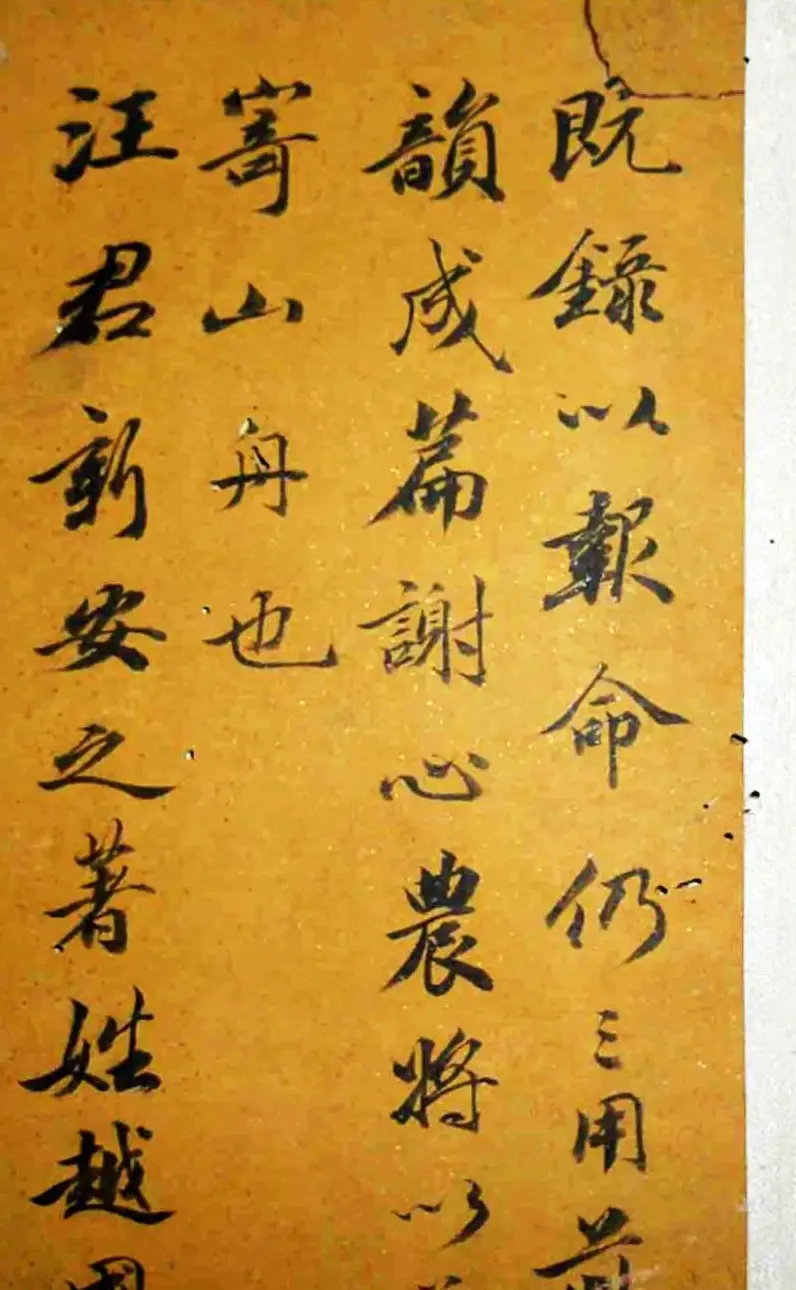 既錄以報命仍三用前
韻成篇謝心農將以
寄山舟也
汪君新安之著姓越國